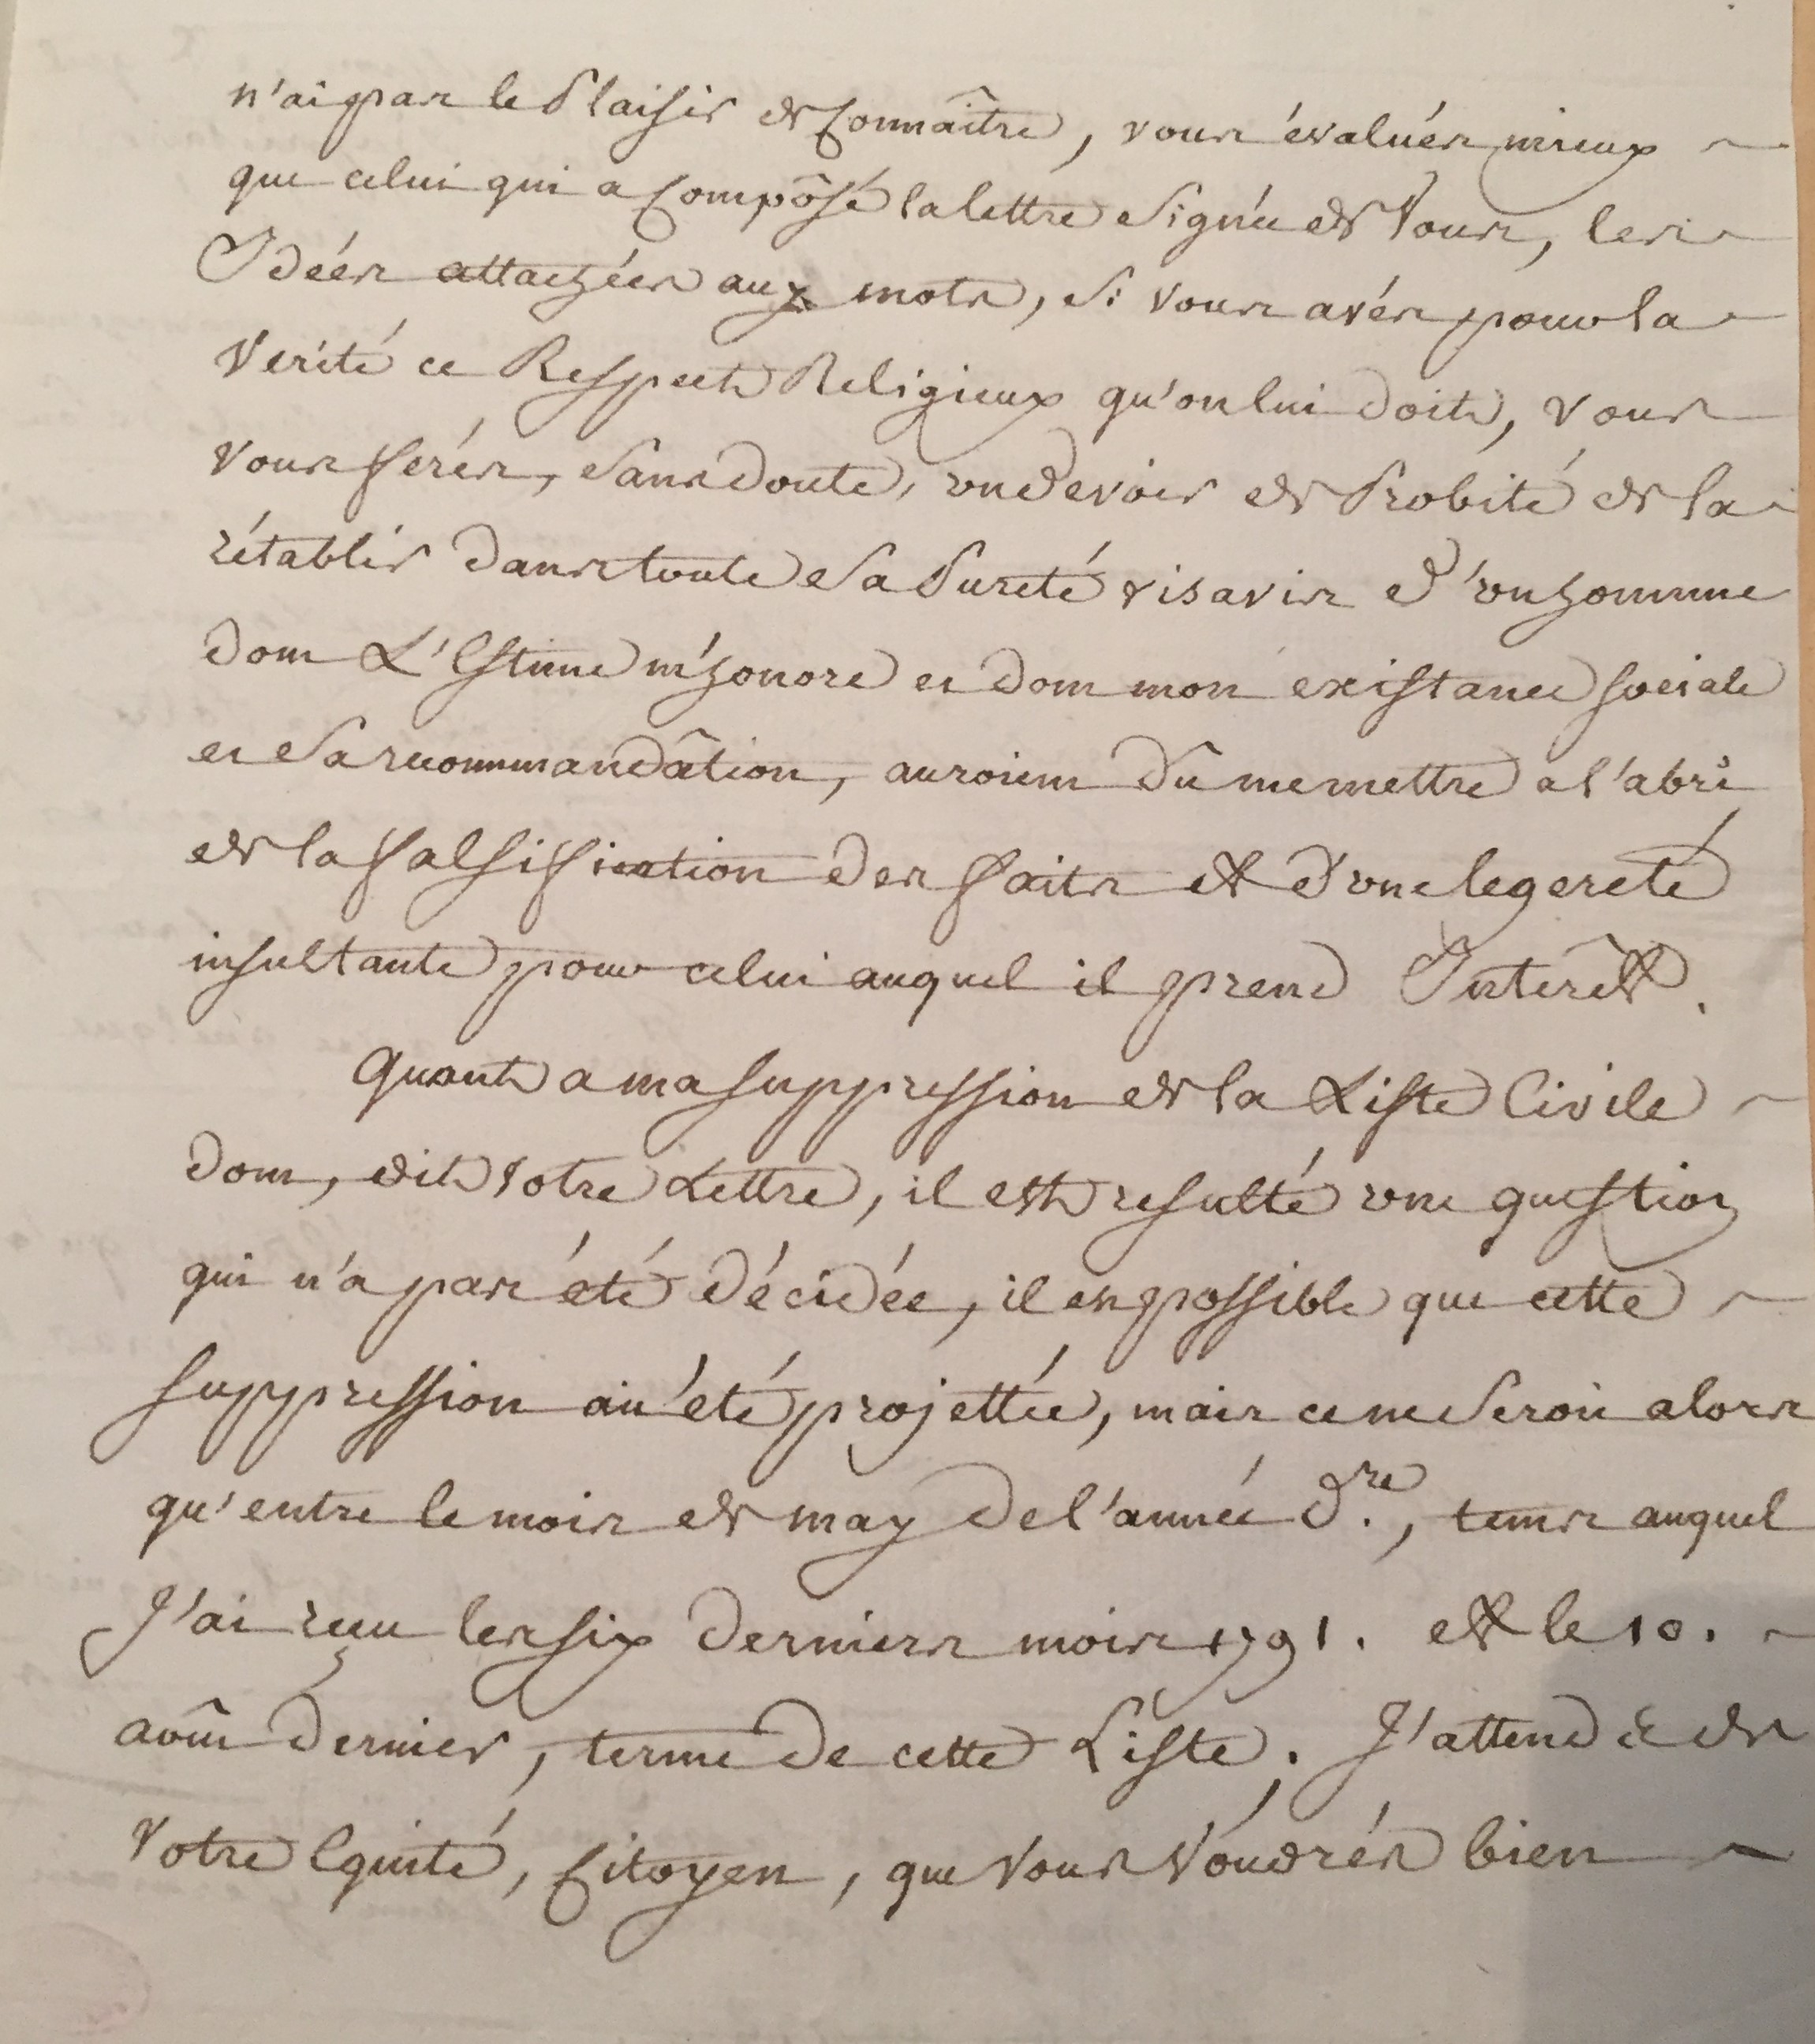 n'ai pas le Plaisir de Connaître, vous évalués mieux
que celui qui a Compôsé la lettre Signée de Vous, les
Idées attachées aux mots, Si Vous avés pour la
Verité ce Respect Religieux qu'on lui doit, vous
vous ferés, Sans doute, un devoir de Probité de la
rétablir dans toute Sa Pureté visavis d'un homme
dont L'Estime m'honore et dont mon existance sociale
et Sa recommandâtion, auroient dû me mettre a l'abri
de la falsification des faits et d'une legereté
insultante pour celui auquel il prend Intérêt.
Quant a ma suppression de la Liste Civile
dont, dit Votre Lettre, il est resulté une question
qui n'a pas été décidée, il est possible que cette
suppression ait été projettée, mais ce ne Seroit alors
qu'entre le mois de may de l'année d.re, tems auquel
J'ai reçu les six derniers mois 1791. et le 10.
aoûst dernier, terme de cette Liste. J'attends de
Votre Equité, Citoyen, que Vous Voudrés bien